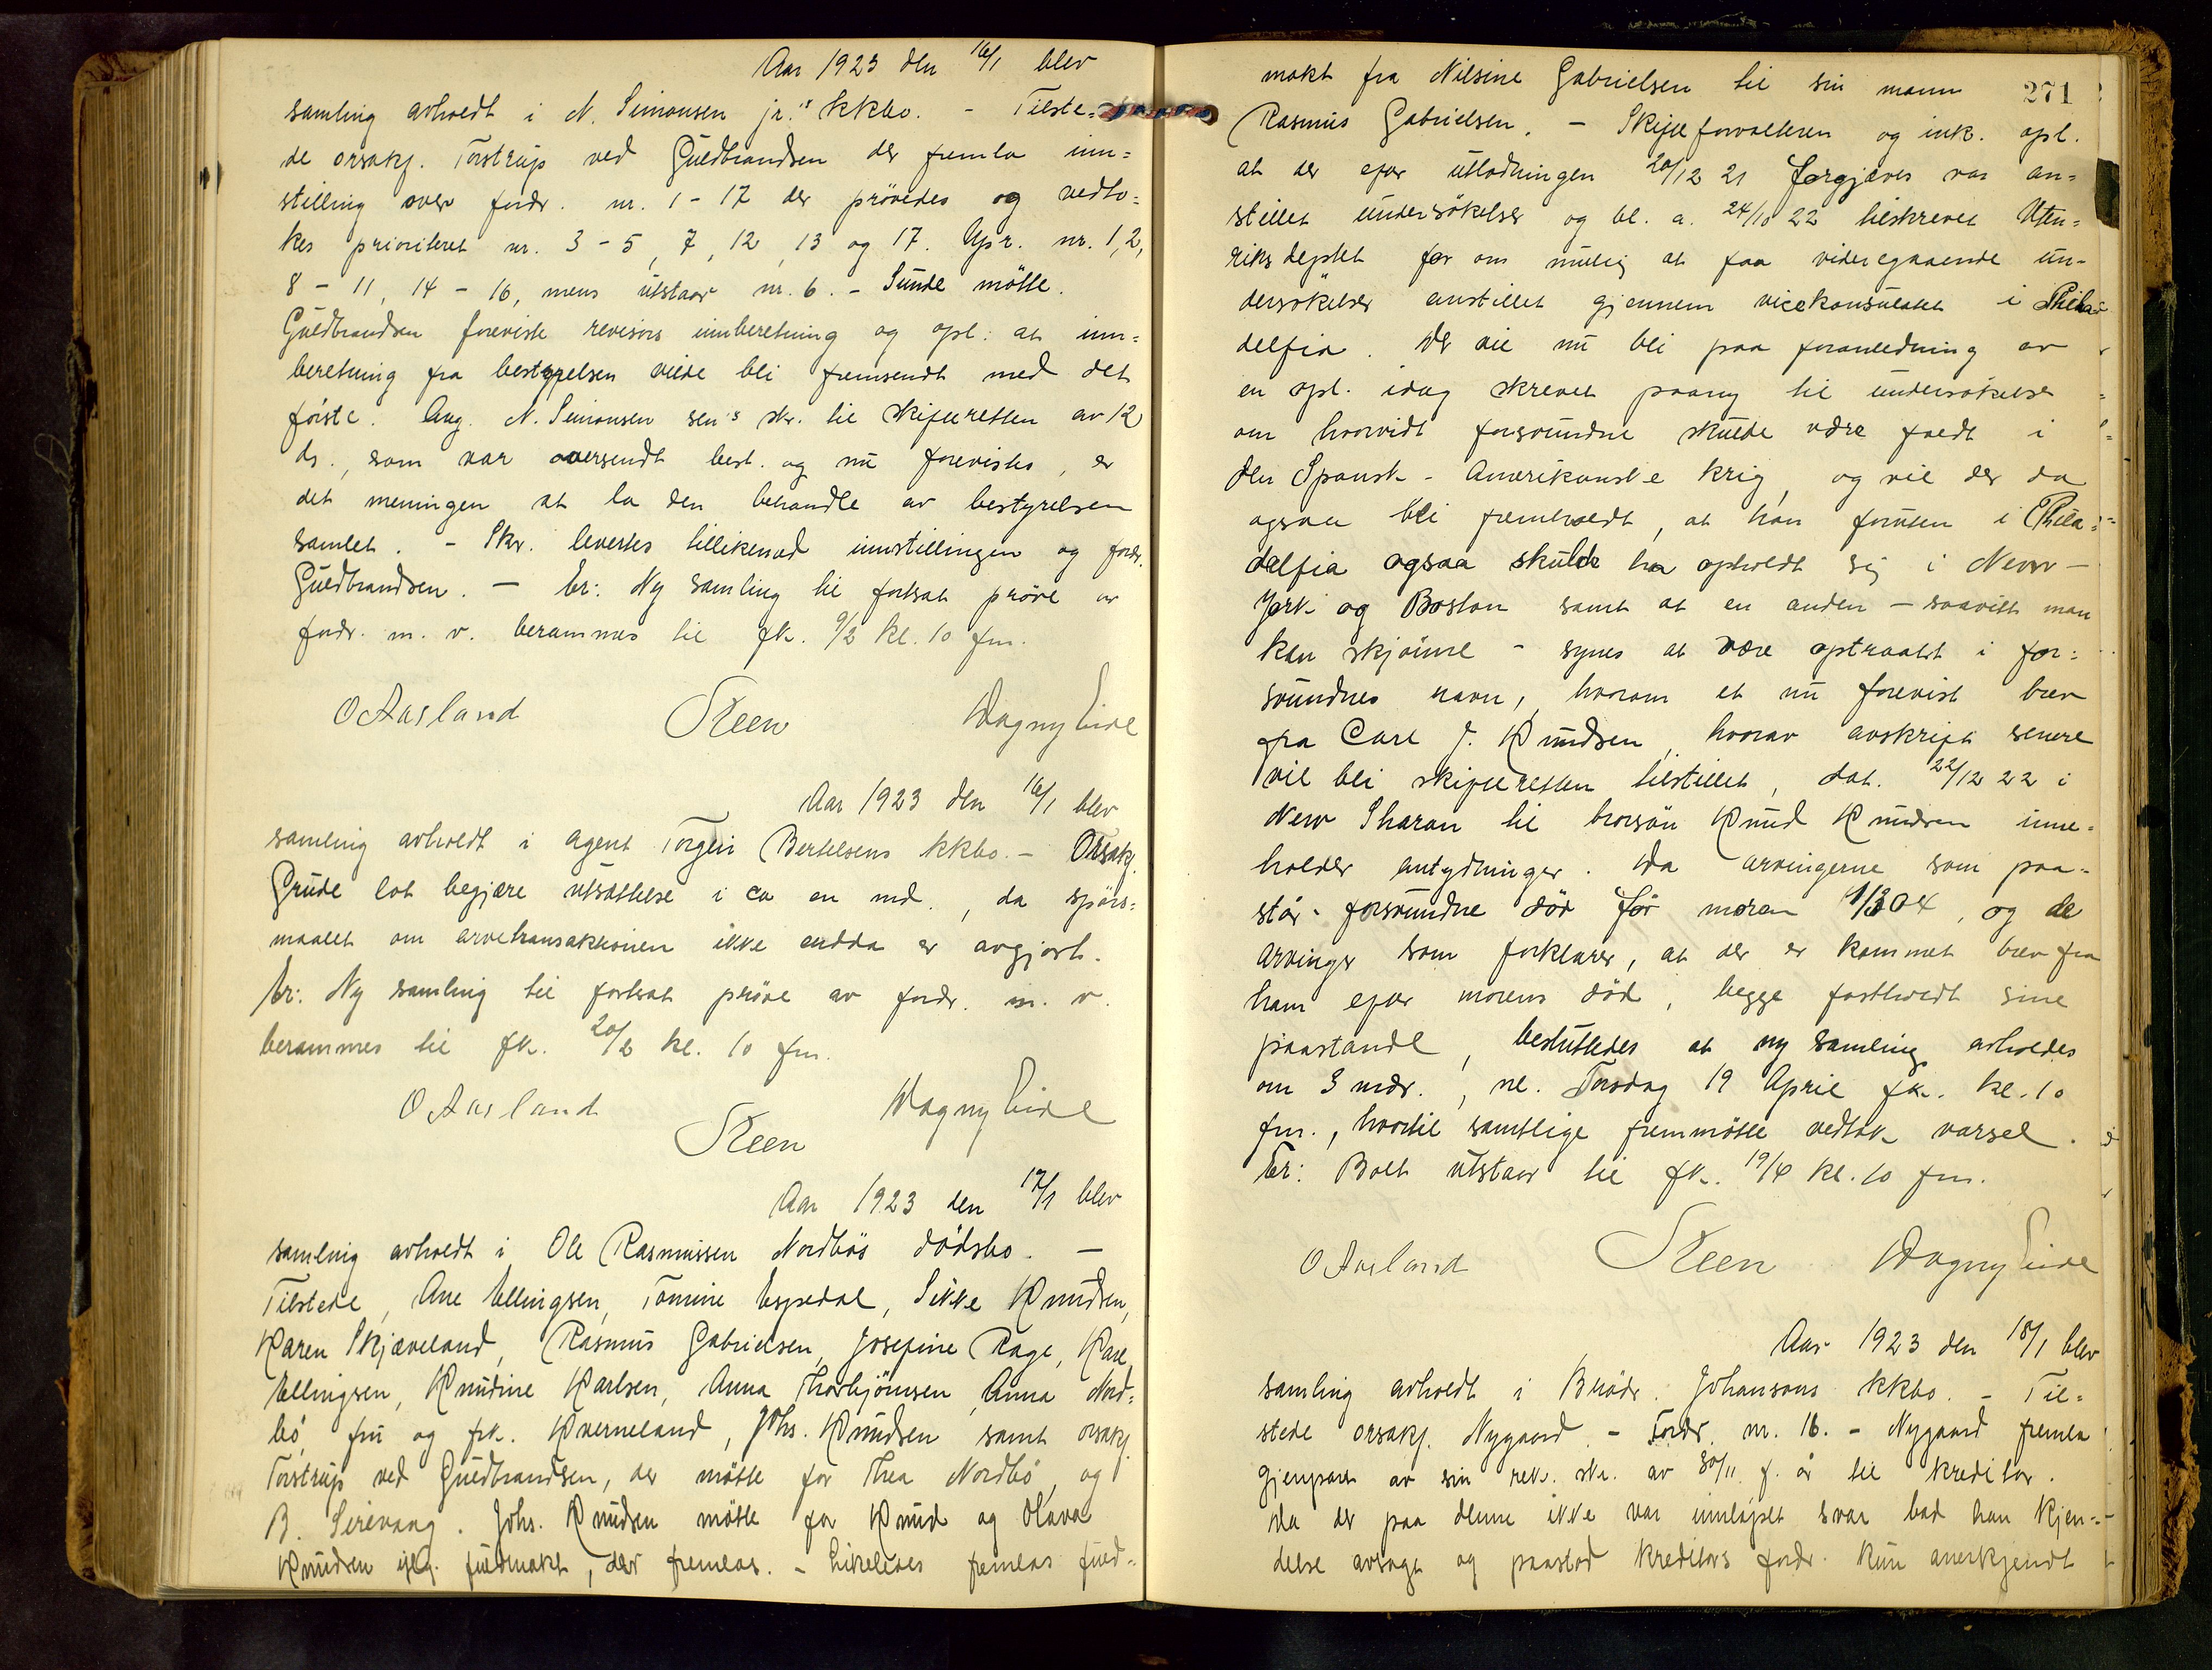 Aar 1923 den 16/1 blev
samling avholdt i N. Simonsen jr.'s kkbo. - Tilste=
de orsakf. Torstrup ved Guldbrandsen der fremla inn=
stilling over fordr. nr. 1 - 17 der prövedes og vedto=
kes prioriteret nr. 3 - 5, 7, 12, 13 og 17. Upr. nr. 1, 2,
8 - 11, 14 - 16, mens utstaar nr. 6. - Sunde mötte.
Guldbrandsen foreviste revisors innberetning og opl. at inn=
beretning fra bestyrelsen vilde bli fremsendt med det
förste. Ang. N. Simonsen sen's skr. til skifteretten av 12
ds., som var oversendt best. og nu forevistes, er
det meningen at la den behandle av bestyrelsen
samlet. - Skr. levertes tillikemed innstillingen og fordr.
Guldbrandsen. - Er: Ny samling til fortsat pröve av
fordr. m. v. berammes til fk. 9/2 kl. 10 fm.
O Aasland Steen Dagny Eide
Aar 1923 den 16/1 blev
samling avholdt i agent Torgeir Bertelsens kkbo. - Orsakf.
Grude lot begjære utsættelse i ca en md., da spörs=
maalet om arvetransaktionen ikke endda er avgjort.
Er: Ny samling til fortsat pröve av fordr. m. v.
berammes til fk. 20/2 kl. 10 fm.
O Aasland Steen Dagny Eide
Aar 1923 den 17/1 blev
samling avholdt i Ole Rasmussen Nordbös dödsbo. -
Tilstede, Ane Ellingsen, Tomine Espedal, Sikke Knudsen,
Karen Skjæveland, Rasmus Gabrielsen, Josefine Rage, Karl
Ellingsen, Knudine Karlsen, Anna Thorbjörnsen, Anna Nord=
bö, fru og frk. Kverneland, Johs. Knudsen samt orsakf.
Torstrup ved Guldbrandsen, der mötte for Thea Nordbö og
B. Sirevaag. Johs. Knudsen mötte for Knud og Olava
Knudsen iflg. fuldmakt, der fremlas. - Likeledes fremlas fuld=
271
makt fra Nilsine Gabrielsen til sin mann
Rasmus Gabrielsen. - Skifteforvalteren og ink. opl.
at der efter utlodningen 20/12 21 forgjæves var an=
stillet undersökelser og bl. a. 24/10 22 tilskrevet Uten=
riksdeptet for om mulig at faa videregaaende un-
dersökelser anstillet gjennem vicekonsulatet i Phila=
delfia. Der vil nu bli paa foranledning av
en opl. idag skrevet paany til undersökelse
om hvorvidt forsvundne skulde være faldt i
den Spansk - Amerikanske krig, og vil der da
ogsaa bli fremholdt, at han foruten i Phila=
delfia ogsaa skulde ha opholdt sig i New -
York og Boston samt at en anden - saavidt man
kan skjönne - synes at være optraadt i for=
svundnes navn, hvorom et nu forevist brev
fra Carl J. Knudsen, hvorav avskrift senere
vil bli skifteretten tilstillet, dat. 22/12 22 i
New Sharan til brorsön Knud Knudsen inne=
holder antydninger. Da arvingerne som paa=
står forsvundne död för moren 1/3 04, og de
arvinger som forklarer, at der er kommet brev fra
ham efter morens död, begge fastholdt sine
paastande, besluttedes at ny samling avholdes
om 3 mdr., nl. Torsdag 19 April fk. kl. 10
fm., hvortil samtlige fremmötte vedtok varsel.
Er: Boet utstaar til fk. 19/4 kl. 10 fm.
O Aasland Steen Dagny Eide
Aar 1923 den 18/1 blev
samling avholdt i Brödr. Johansons kkbo. - Til=
stede orsakf. Nygaard. - Fordr. nr. 16. - Nygaard fremla
gjenpart av sin rek. skr. av 30/11 f. år til kreditor.
Da der paa denne ikke var innlöpet svar bad han kjen=
delse avsagt og paastod kreditors fordr. kun anerkjendt